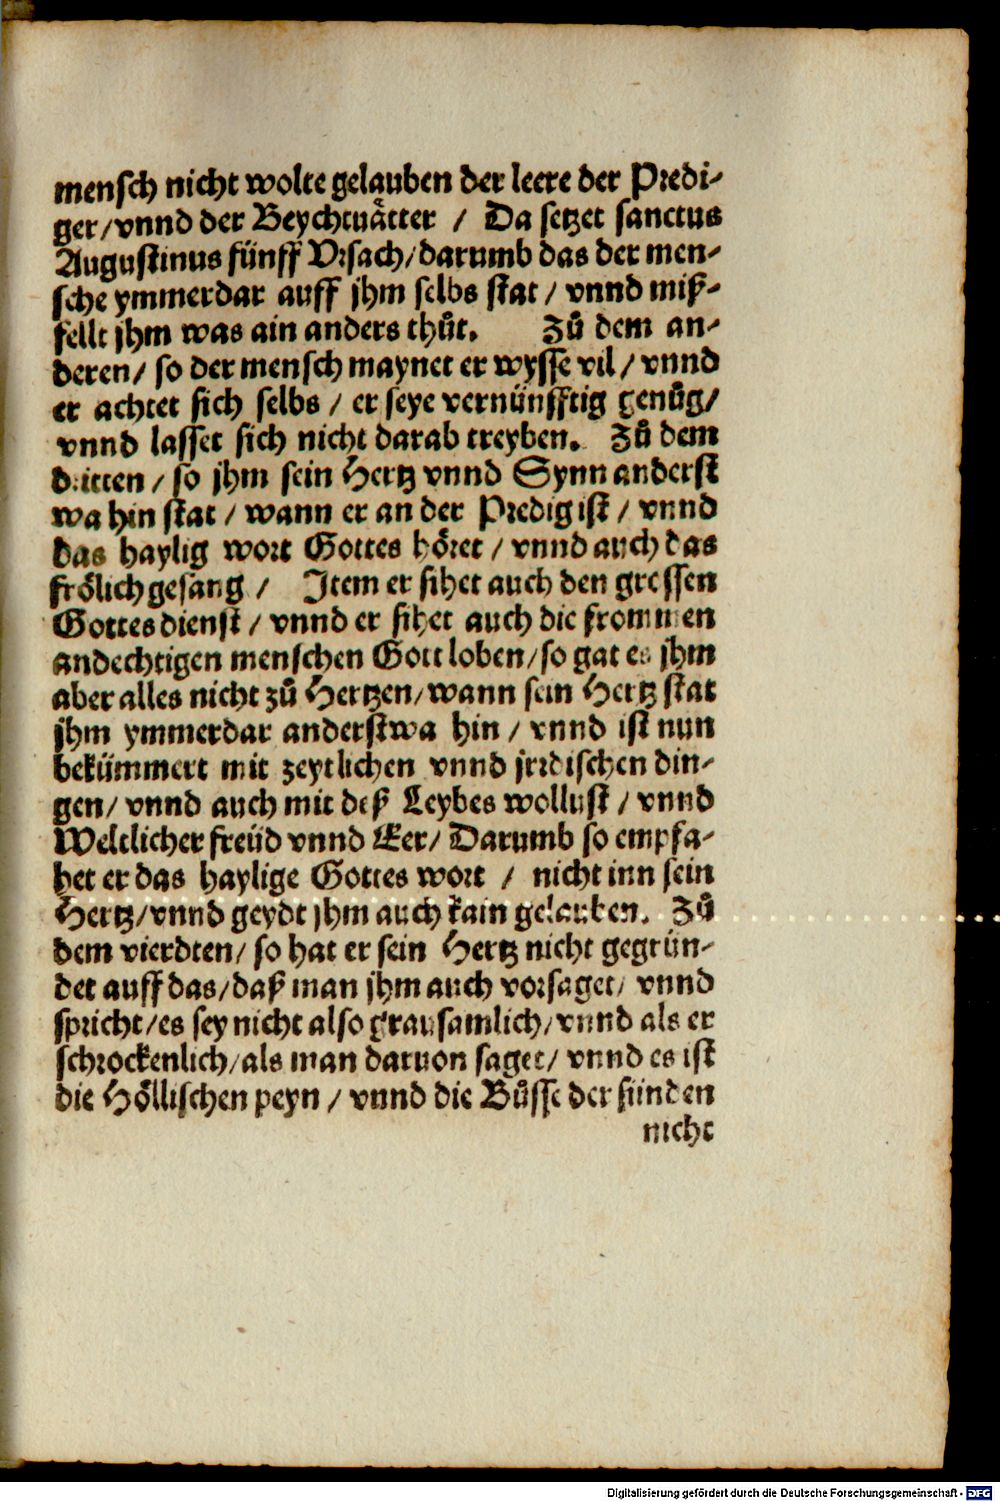 mensch nicht wolte gelauben der leere der Predi-
ger/vnnd der Beychtuätter / Da setzet sanctus
Augustinus fünff Vrsach/darumb das der men-
sche ymmerdar auff jhm selbs stat / vnnd miß-
fellt jhm was ain anders thůt. Zů dem an-
deren/ so der mensch maynet er wysse vil / vnnd
er achtet sich selbs / er seye vernünfftig genůg/
vnnd lasset sich nicht darab treyben. Zů dem
dritten / so jhm sein Hertz vnnd Synn anderst
wa hin stat / wann er an der Predig ist / vnnd
das haylig wort Gottes höret / vnnd auch das
frölich gesang / Item er sihet auch den grossen
Gottes dienst / vnnd er sihet auch die frommen
andechtigen menschen Gott loben/so gat es jhm
aber alles nicht zů Hertzen/wann sein Hertz stat
jhm ymmerdar anderstwa hin / vnnd ist nun
bekümmert mit zeytlichen vnnd jrrdischen din-
gen/ vnnd auch mit deß Leybes wollust / vnnd
Weltlicher freüd vnnd Eer/ Darumb so empfa-
het er das haylige Gottes wort / nicht inn sein
Hertz/vnnd geydt jhm auch kain gelauben. Zů
dem vierdten/ so hat er sein Hertz nicht gegrün-
det auff das/daß man jhm auch vorsaget/ vnnd
spricht/es sey nicht also grausamlich/vnnd als er
schrockenlich/als man daruon saget/ vnnd es ist
die Höllischen peyn / vnnd die Bůsse der sünden
nicht
Digitalisierung gefördert durch die Deutsche Forschungsgemeinschaft - DFG